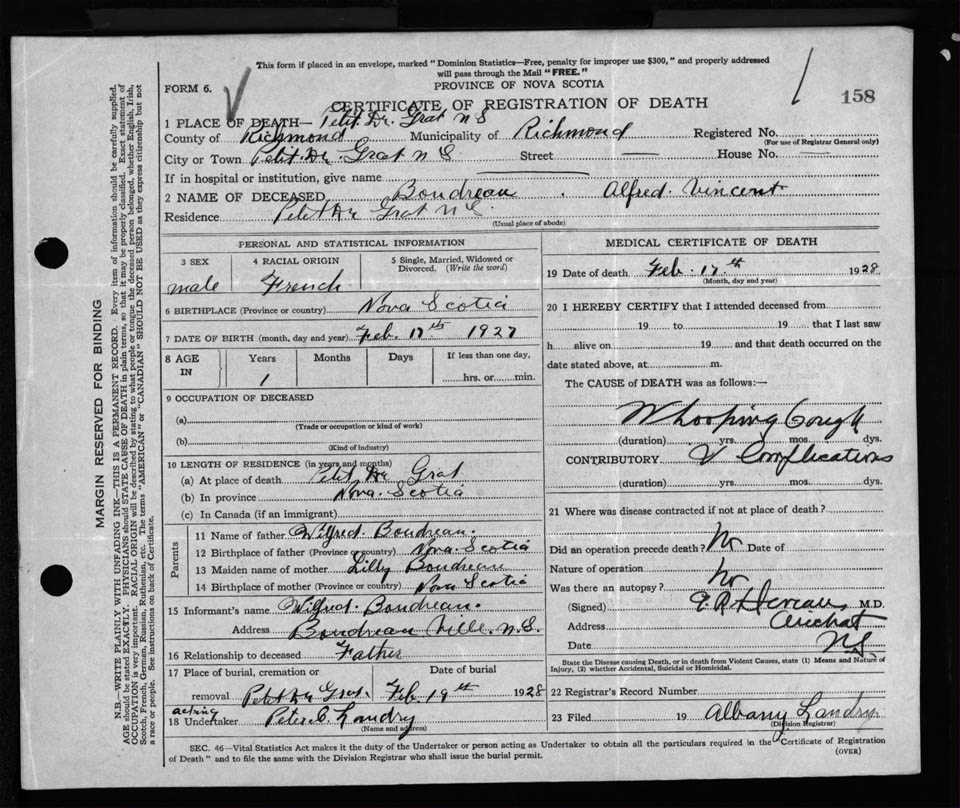 This form if placed in an envelope, marked "Dominion Statistics—Free, penalty for improper use $300," and properly addressed
will pass through the Mail "FREE."
FORM 6.
PROVINCE OF NOVA SCOTIA
CERTIFICATE OF REGISTRATION OF DEATH
158
1 PLACE OF DEATH— Petit De Grat N S
County of Richmond Municipality of Richmond Registered No.
(For use of Registrar General only)
City or Town Petit De Grat N S Street — House No. —
If in hospital or institution, give name
2 NAME OF DECEASED Boudreau . Alfred Vincent
Residence Petit De Grat N S
(Usual place of abode)
PERSONAL AND STATISTICAL INFORMATION
3 SEX 4 RACIAL ORIGIN 5 Single, Married, Widowed or
Divorced. (Write the word)
male French
6 BIRTHPLACE (Province or country) Nova Scotia
7 DATE OF BIRTH (month, day and year) Feb. 17th 1927
8 AGE IN Years Months Days If less than one day,
1 hrs. or min.
9 OCCUPATION OF DECEASED
(a)
(Trade or occupation or kind of work)
(b)
(Kind of industry)
10 LENGTH OF RESIDENCE (in years and months)
(a) At place of death Petit De Grat
(b) In province Nova Scotia
(c) In Canada (if an immigrant)
Parents
11 Name of father Wilfred Boudreau.
12 Birthplace of father (Province or country) Nova Scotia
13 Maiden name of mother Lilly Boudreau
14 Birthplace of mother (Province or country) Nova Scotia
15 Informant's name Wilfred Boudreau.
Address Boudreau Ville N.S.
16 Relationship to deceased Father
17 Place of burial, cremation or Date of burial
removal Petit De Grat. Feb. 19th 1928
acting
18 Undertaker Peter C Landry
(Name and address)
MEDICAL CERTIFICATE OF DEATH
19 Date of death Feb. 17.th 1928
(Month, day and year)
20 I HEREBY CERTIFY that I attended deceased from
19 to 19 that I last saw
h alive on 19 and that death occurred on the
date stated above, at m.
The CAUSE of DEATH was as follows:—
Whooping Cough
(duration) yrs. mos. dys.
CONTRIBUTORY & Complications
(duration) yrs. mos. dys.
21 Where was disease contracted if not at place of death?
Did an operation precede death? No Date of
Nature of operation
Was there an autopsy? No
(Signed) M.D.
Address Arichat
Date N S
State the Disease causing Death, or in death from Violent Causes, state (1) Means and Nature of
Injury, (2) whether Accidental, Suicidal or Homicidal.
22 Registrar's Record Number
23 Filed 19 Albany Landry
(Division Registrar)
SEC. 46—Vital Statistics Act makes it the duty of the Undertaker or person acting as Undertaker to obtain all the particulars required in the Certificate of Registration
of Death" and to file the same with the Division Registrar who shall issue the burial permit.
(OVER)
MARGIN RESERVED FOR BINDING
N.B. WRITE PLAINLY WITH UNFADING INK—THIS IS A PERMANENT RECORD. Every item of information should be carefully supplied.
AGE should be stated EXACTLY. PHYSICIANS should STATE CAUSE OF DEATH in plain terms, so that it may be properly classified. Exact statement of
OCCUPATION is very important. RACIAL ORIGIN will be described by stating to what people or tongue the deceased person belonged, whether English, Irish,
Scotch, French, German, Russian, Ruthenian, etc. The terms "AMERICAN" or "CANADIAN" SHOULD NOT BE USED as they express citizenship but not
a race or people. See instructions on back of Certificate.